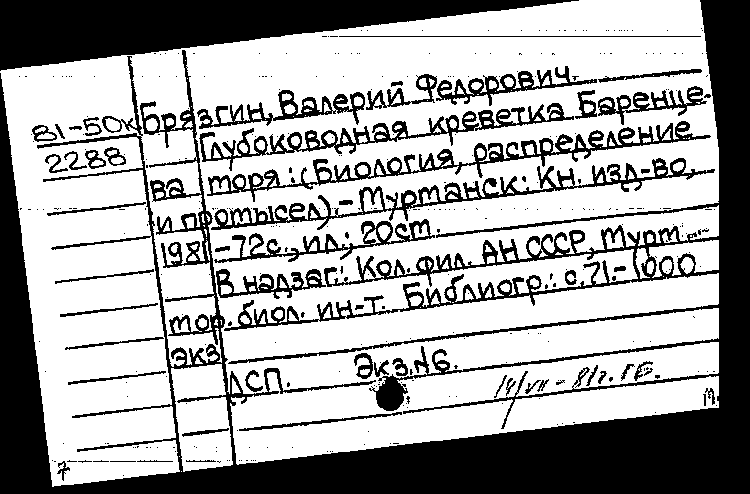 81-50к
2288
Брязгин, Валерий Федорович.
Глубоководная креветка Баренце-
ва моря : (Биология, распределение
и промысел). - Мурманск : Кн. изд-во,
1981 - 72с., ил.; 20см.
В надзаг.: Кол. фил. АН СССР, Мурм.
мор. биол. ин-т. Библиогр.: с.71. - 1000
экз.
ДСП. Экз.№6.
14/VII - 81г. ГБ.
М.
7